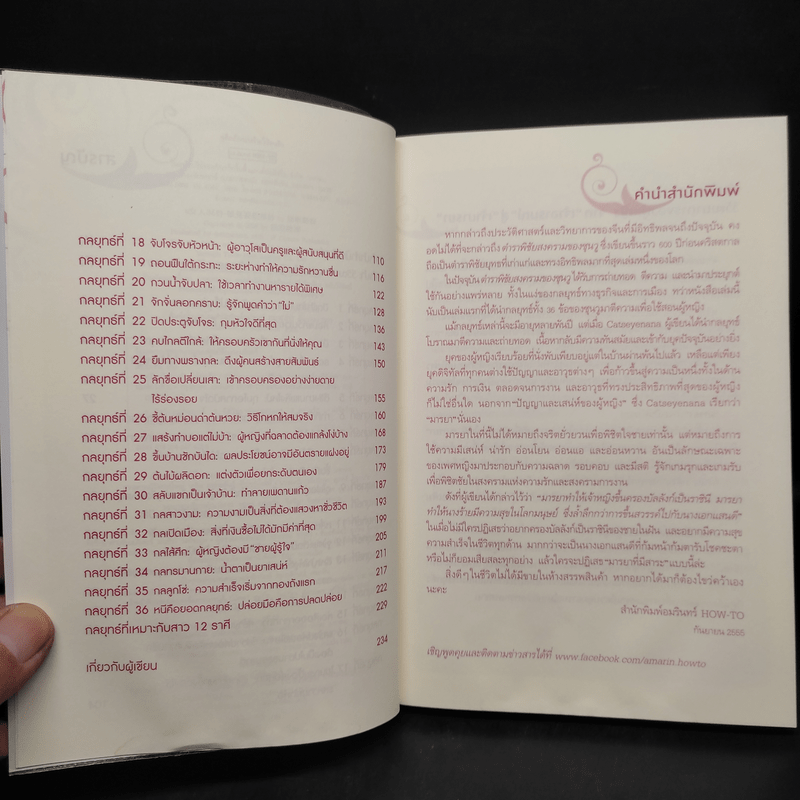 กลยุทธ์ที่ 18 จับโจรจับหัวหน้า: ผู้อาวุโสเป็นครูและผู้สนับสนุนที่ดี 110
กลยุทธ์ที่ 19 ถอนฟืนใต้กระทะ: ระยะห่างทำให้ความรักหวานชื่น 116
กลยุทธ์ที่ 20 กวนน้ำจับปลา: ใช้เวลาทำงานหารายได้พิเศษ 122
กลยุทธ์ที่ 21 จักจั่นลอกคราบ: รู้จักพูดคำว่า "ไม่" 128
กลยุทธ์ที่ 22 ปิดประตูจับโจร: กุมหัวใจดีที่สุด 136
กลยุทธ์ที่ 23 คบไกลตีใกล้: ให้ครอบครัวเขากันที่นั่งให้คุณ 143
กลยุทธ์ที่ 24 ยืมทางพรางกล: ดึงผู้คนสร้างสายสัมพันธ์ 150
กลยุทธ์ที่ 25 ลักขื่อเปลี่ยนเสา: เข้าครอบครองอย่างง่ายดาย
ไร้ร่องรอย 155
กลยุทธ์ที่ 26 ชี้ต้นหม่อนด่าต้นหวย: วิธีโกหกให้สมจริง 160
กลยุทธ์ที่ 27 แสร้งทำบอแต่ไม่บ้า: ผู้หญิงที่ฉลาดต้องแกล้งโง่บ้าง 168
กลยุทธ์ที่ 28 ขึ้นบ้านชักบันได: ผลประโยชน์อาจมีอันตรายแฝงอยู่ 173
กลยุทธ์ที่ 29 ต้นไม้ผลิดอก: แต่งตัวเพื่อยกระดับตนเอง 179
กลยุทธ์ที่ 30 สลับแขกเป็นเจ้าบ้าน: ทำลายเพดานแก้ว 187
กลยุทธ์ที่ 31 กลสาวงาม: ความงามเป็นสิ่งที่ต้องแสวงหาชั่วชีวิต 193
กลยุทธ์ที่ 32 กลเปิดเมือง: สิ่งที่เงินซื้อไม่ได้มักมีค่าที่สุด 199
กลยุทธ์ที่ 33 กลไส้ศึก: ผู้หญิงต้องมี "ชายผู้รู้ใจ" 205
กลยุทธ์ที่ 34 กลทรมานกาย: น้ำตาเป็นยาเสน่ห์ 211
กลยุทธ์ที่ 35 กลลูกโซ่: ความสำเร็จเริ่มจากกองถังแรก 217
กลยุทธ์ที่ 36 หนีคือยอดกลยุทธ์: ปล่อยมือคือการปลดปล่อย 222
กลยุทธ์ที่เหมาะกับสาว 12 ราศี 229
เกี่ยวกับผู้เขียน 234
คำนำสำนักพิมพ์
หากกล่าวถึงประวัติศาสตร์และวิทยาการของจีนที่มีอิทธิพลจนถึงปัจจุบัน คง
อดไม่ได้ที่จะกล่าวถึง ตำราพิชัยสงครามของซุนวู ซึ่งเขียนขึ้นราว 600 ปีก่อนคริสตกาล
ถือเป็นตำราพิชัยยุทธที่เก่าแก่และทรงอิทธิพลมากที่สุดเล่มหนึ่งของโลก
ในปัจจุบัน ตำราพิชัยสงครามของซุนวู ได้รับการถ่ายทอด ตีความ และนำมาประยุกต์
ใช้กันอย่างแพร่หลาย ทั้งในแง่ของกลยุทธ์ทางธุรกิจและการเมือง ทว่าหนังสือเล่มนี้
นับเป็นเล่มแรกที่ได้นำกลยุทธ์ทั้ง 36 ข้อของซุนวูมาตีความเพื่อใช้สอนผู้หญิง
แม้กลยุทธ์เหล่านี้จะมีอายุหลายพันปี แต่เมื่อ Catseyenana ผู้เขียนได้นำกลยุทธ์
โบราณมาตีความและถ่ายทอด เนื้อหากลับมีความทันสมัยและเข้ากับยุคปัจจุบันอย่างยิ่ง
ยุคของผู้หญิงเรียบร้อยที่นั่งพับเพียบอยู่แต่ในบ้านผ่านพ้นไปแล้ว เหลือแต่เพียง
ยุคดิจิทัลที่ทุกคนต่างใช้ปัญญาและอาวุธต่างๆ เพื่อก้าวขึ้นสู่ความเป็นหนึ่งทั้งในด้าน
ความรัก การเงิน ตลอดจนการงาน และอาวุธที่ทรงประสิทธิภาพที่สุดของผู้หญิง
ก็ไม่ใช่อื่นใด นอกจาก "ปัญญาและเสน่ห์ของผู้หญิง" ซึ่ง Catseyenana เรียกว่า
"มารยา" นั่นเอง
มารยาในที่นี้ไม่ได้หมายถึงจริตยั่วยวนเพื่อพิชิตใจชายเท่านั้น แต่หมายถึงการ
ใช้ความมีเสน่ห์ น่ารัก อ่อนโยน อ่อนแอ และอ่อนหวาน อันเป็นลักษณะเฉพาะ
ของเพศหญิงมาประกอบกับความฉลาด รอบคอบ และมีสติ รู้จักเกมรุกและเกมรับ
เพื่อพิชิตชัยในสงครามแห่งความรักและสงครามการงาน
ดังที่ผู้เขียนได้กล่าวไว้ว่า "มารยาทำให้เจ้าหญิงขึ้นครองบัลลังก์เป็นราชินี มารยา
ทำให้นางร้ายมีความสุขในโลกมนุษย์ ซึ่งล้ำลึกกว่าการขึ้นสวรรค์ไปกับนางเอกแสนดี"
ในเมื่อไม่มีใครปฏิเสธว่าอยากครองบัลลังก์เป็นราชินีของชายในฝัน และอยากมีความสุข
ความสำเร็จในชีวิตทุกด้าน มากกว่าจะเป็นนางเอกแสนดีที่ก้มหน้าก้มตารับโชคชะตา
หรือไม่ก็ยอมเสียสละทุกอย่าง แล้วใครจะปฏิเสธ "มารยาที่มีสาระ" แบบนี้ล่ะ
สิ่งดีๆ ในชีวิตไม่ได้มีขายในห้างสรรพสินค้า หากอยากได้มาก็ต้องไขว่คว้าเอง
นะคะ
สำนักพิมพ์อมรินทร์ HOW-TO
กันยายน 2555
เชิญพูดคุยและติดตามข่าวสารได้ที่ www.facebook.com/amarin.howto